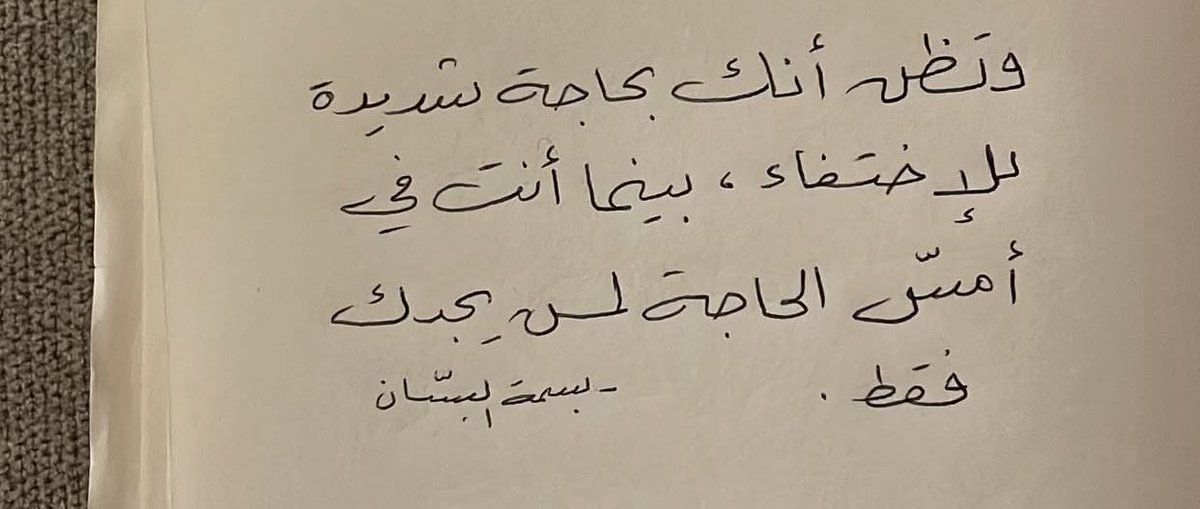 وتظن أنك بحاجة شديدة
للإختفاء ، بينما أنت في
أمسّ الحاجة لمن يجدك
فقط . - بسمة البسّان